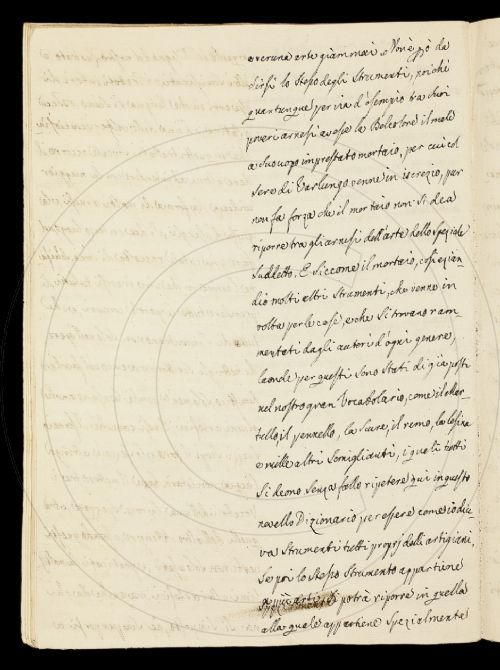 veruna arte giammai. Non è già da
dirsi lo stesso degli Strumenti, poichè
quantunque per via d'esempio tra suoi
poveri arnesi avesse la Belcolore il male
a suo uopo imprestato mortaio, per cui col
Sere di Varlungo venne in iscrezio, pur
non fa forza che il mortaio non si dea
riporre tra gli arnesi dell'arte dello speziale
suddetto. E siccome il mortaio, così ezian-
dio molti altri Strumenti, che venne in
volta per le cose, e che si trovano ram-
mentati dagli autori d'ogni genere,
laonde per questi sono stati di già posti
nel nostro gran Vocabolario, come il mar-
tello, il pennello, la scure, il remo, la lesina
e mille altri somiglianti, i quali tutti
si deono senza fallo ripetere qui in questo
novello Dizionario per essere come io di-
va strumenti tutti proprj delli artigiani,
Se poi lo stesso strumento appartiene
a più arti, si potrà riporre in quella
alla quale appartiene spezialmente